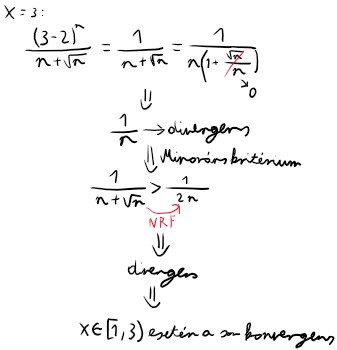 X=3:
(3-2)^n / (n+√n) = 1 / (n+√n) = 1 / (n(1+ √n/n))
↘ 0
⇓
1/n → divergens
⇓ Minoráns kritérium
1 / (n+√n) > 1 / (2n)
NRF
⇓
divergens
⇓
X∈[1,3) esetén a sor konvergens